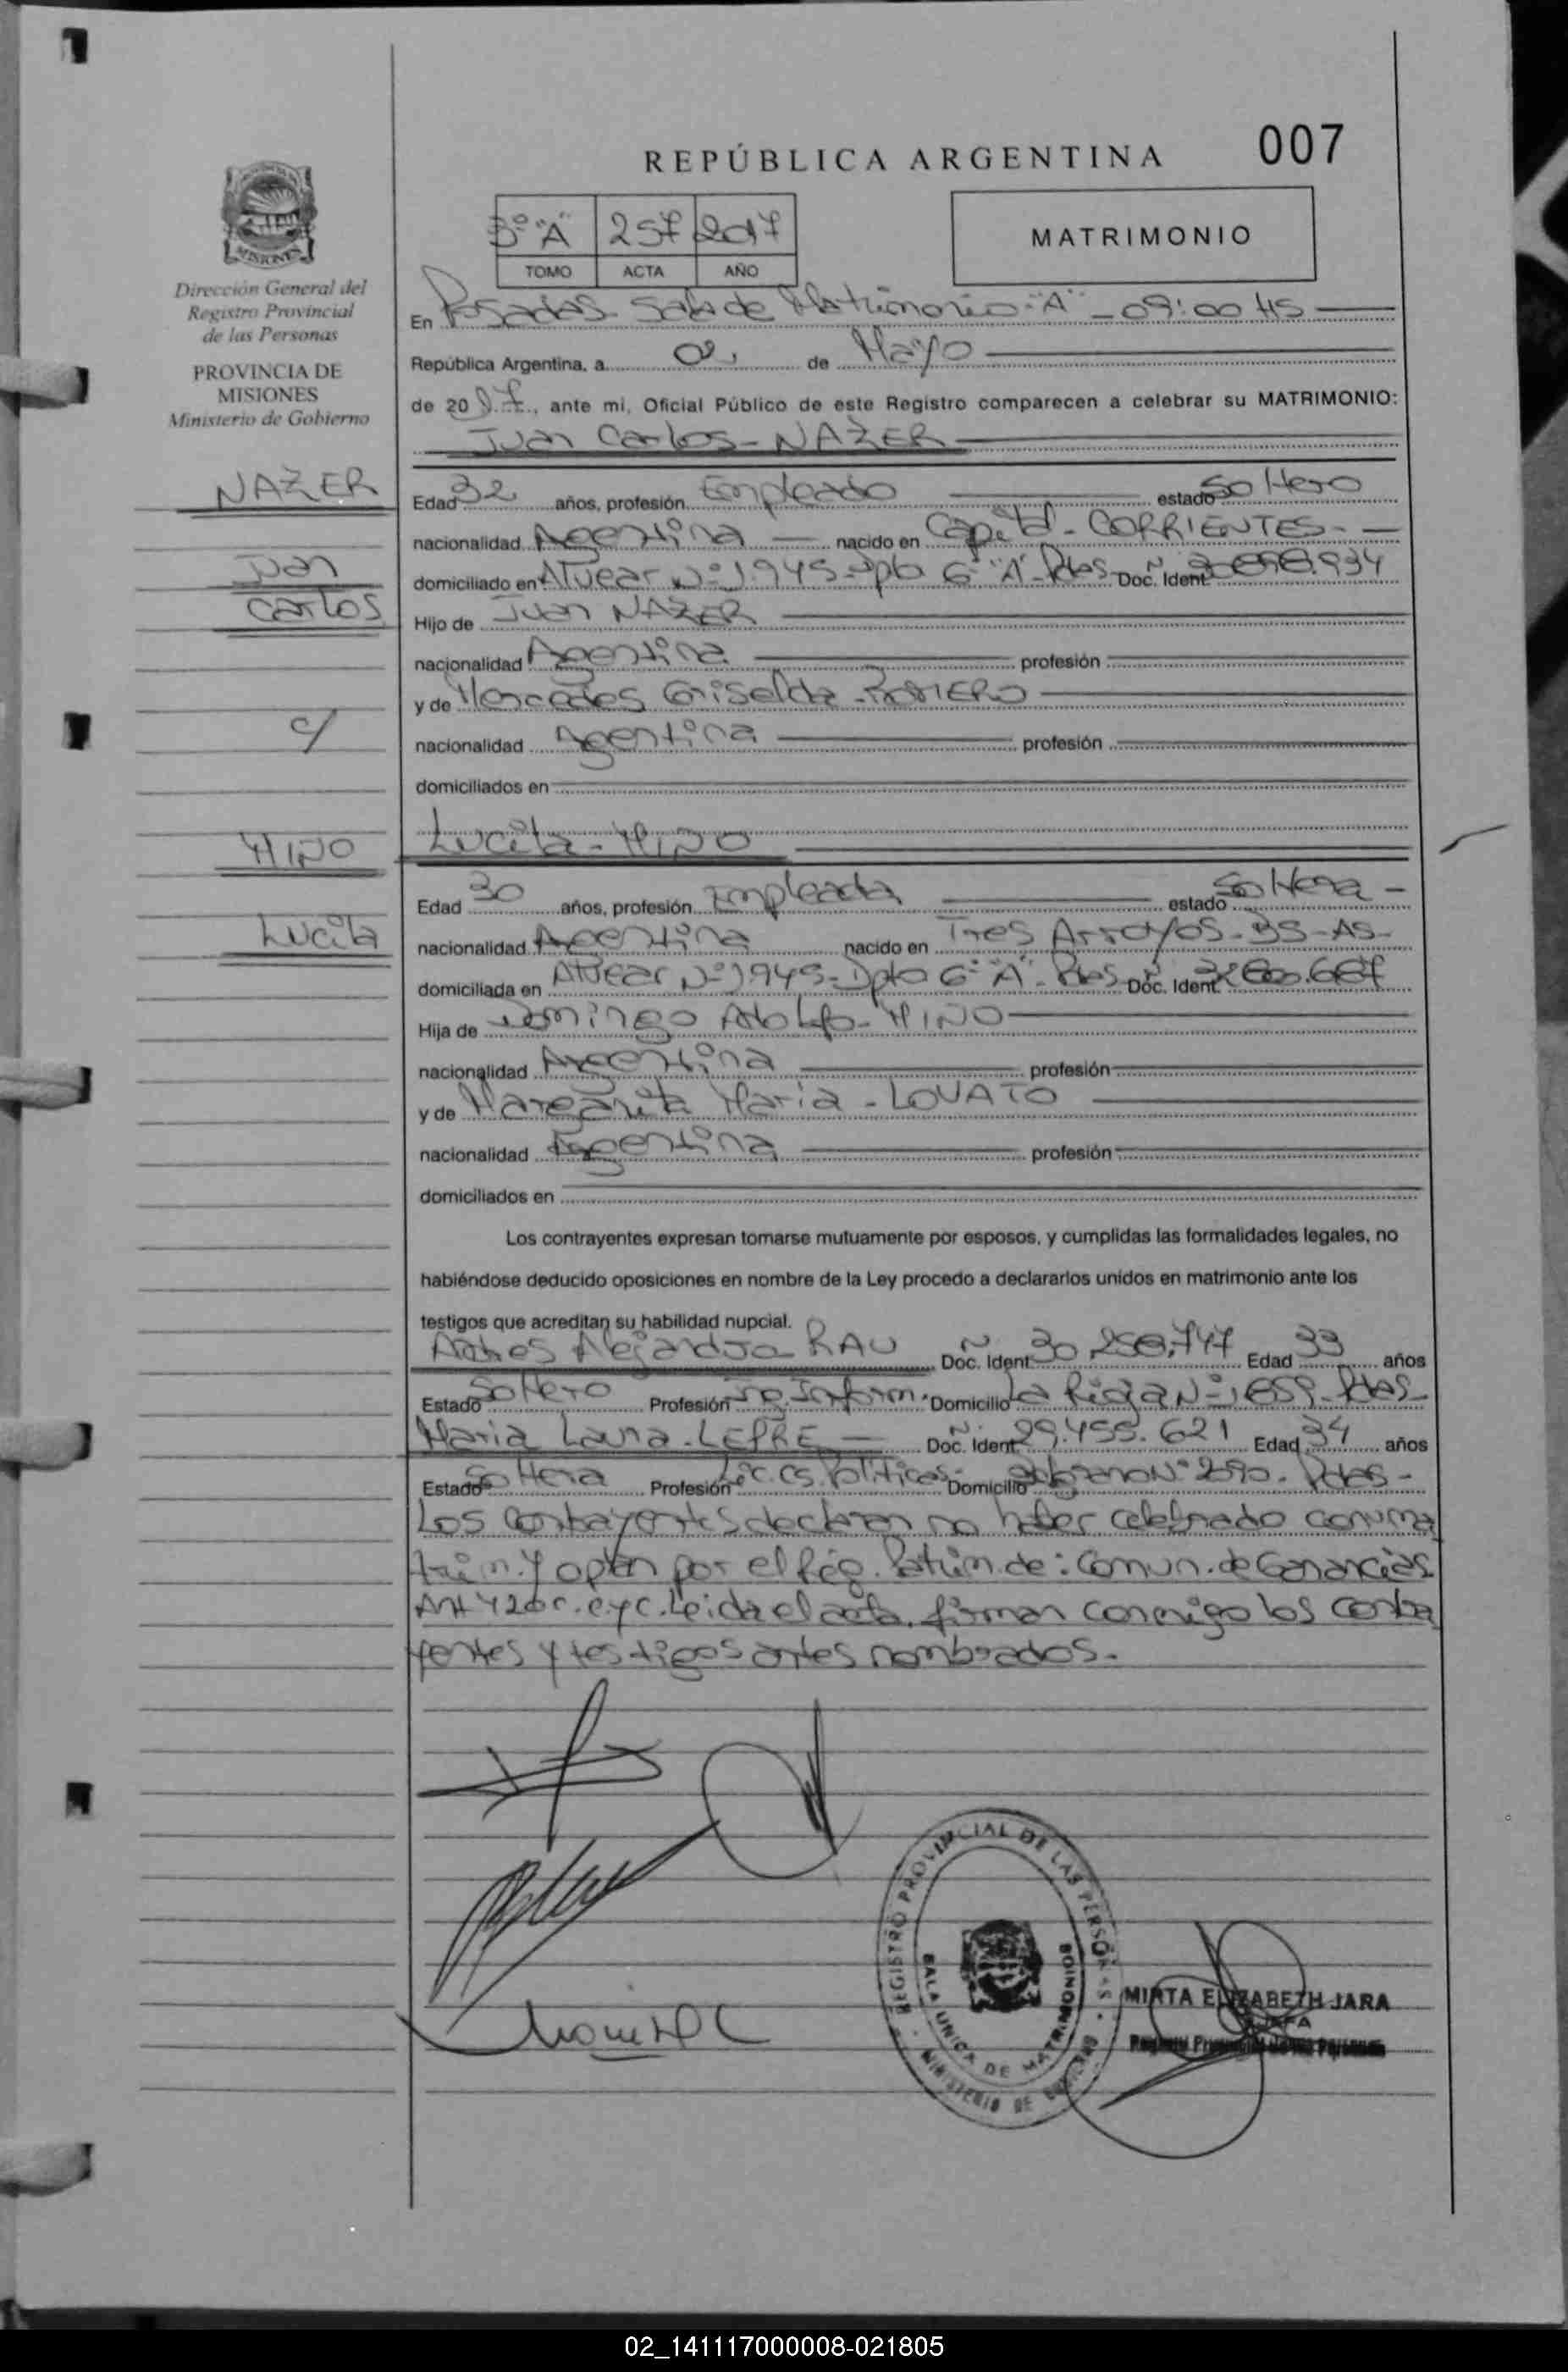 REPÚBLICA ARGENTINA
007
3º "A" 257 2017
TOMO ACTA AÑO
MATRIMONIO
MISIONES
Dirección General del
Registro Provincial
de las Personas
PROVINCIA DE
MISIONES
Ministerio de Gobierno
En Posadas - Sala de Matrimonio "A" - 09:00 HS
República Argentina, a 02, de Mayo
de 2017, ante mi, Oficial Público de este Registro comparecen a celebrar su MATRIMONIO:
Juan Carlos - NAZER
NAZER
Juan
Carlos
c/
MINO
Lucila
Edad 32 años, profesión Empleado estado Soltero
nacionalidad Argentina nacido en Capital - CORRIENTES -
domiciliado en Alvear Nº 1.945 - Dpto 6º "A" - Pdas - Doc. Ident.
Hijo de Juan NAZER
nacionalidad Argentina profesión
y de Mercedes Griselda - ROMERO
nacionalidad Argentina profesión
domiciliados en
Lucila - MINO
Edad 30 años, profesión Empleada estado Soltera -
nacionalidad Argentina nacido en Tres Arroyos - BS - AS -
domiciliada en Alvear Nº 1945 - Dpto 6º "A" - Pdas - Doc. Ident.
Hija de Domingo Adolfo - MINO
nacionalidad Argentina profesión
y de Margarita Maria - LOVATO
nacionalidad Argentina profesión
domiciliados en
Los contrayentes expresan tomarse mutuamente por esposos, y cumplidas las formalidades legales, no
habiéndose deducido oposiciones en nombre de la Ley procedo a declararlos unidos en matrimonio ante los
testigos que acreditan su habilidad nupcial.
Alejandro RAU Doc. Ident. 30.258.747 Edad 33 años
Estado Soltero Profesión Ing. Inform. Domicilio La Rioja Nº 1659 - Pdas -
Maria Laura - LEPRE - Doc. Ident. 29.455.621 Edad 34 años
Estado Soltera Profesión Lic. Cs. Politicas - Domicilio Nº 2590 - Pdas -
Los contrayentes declaran no haber celebrado conv. ma
trim. y optan por el Rég. Patrim. de: Comun. de Ganancias
Art 420 c. c y c. Leida el acta, firman conmigo los contra
yentes y testigos antes nombrados.
REGISTRO PROVINCIAL DE LAS PERSONAS
SALA UNICA DE MATRIMONIOS
MINISTERIO DE GOBIERNO
MIRTA ELIZABETH JARA
JEFA
Registro Provincial de las Personas
02_141117000008-021805